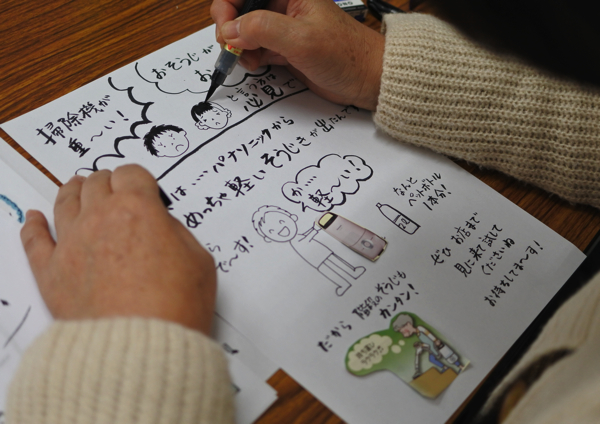 おそうじが
お
掃除機が
重〜い!
と言う方は
必見で
は・・・パナソニックから
めっちゃ軽いそうじきが出たんで
で〜す!
がっ
軽〜い!
なんと
ペットボトル
1本分!
ぜひ お店まで
見に来て試して
くださいね
お待ちしてま〜す!
だから 階段のそうじも
カンタン!